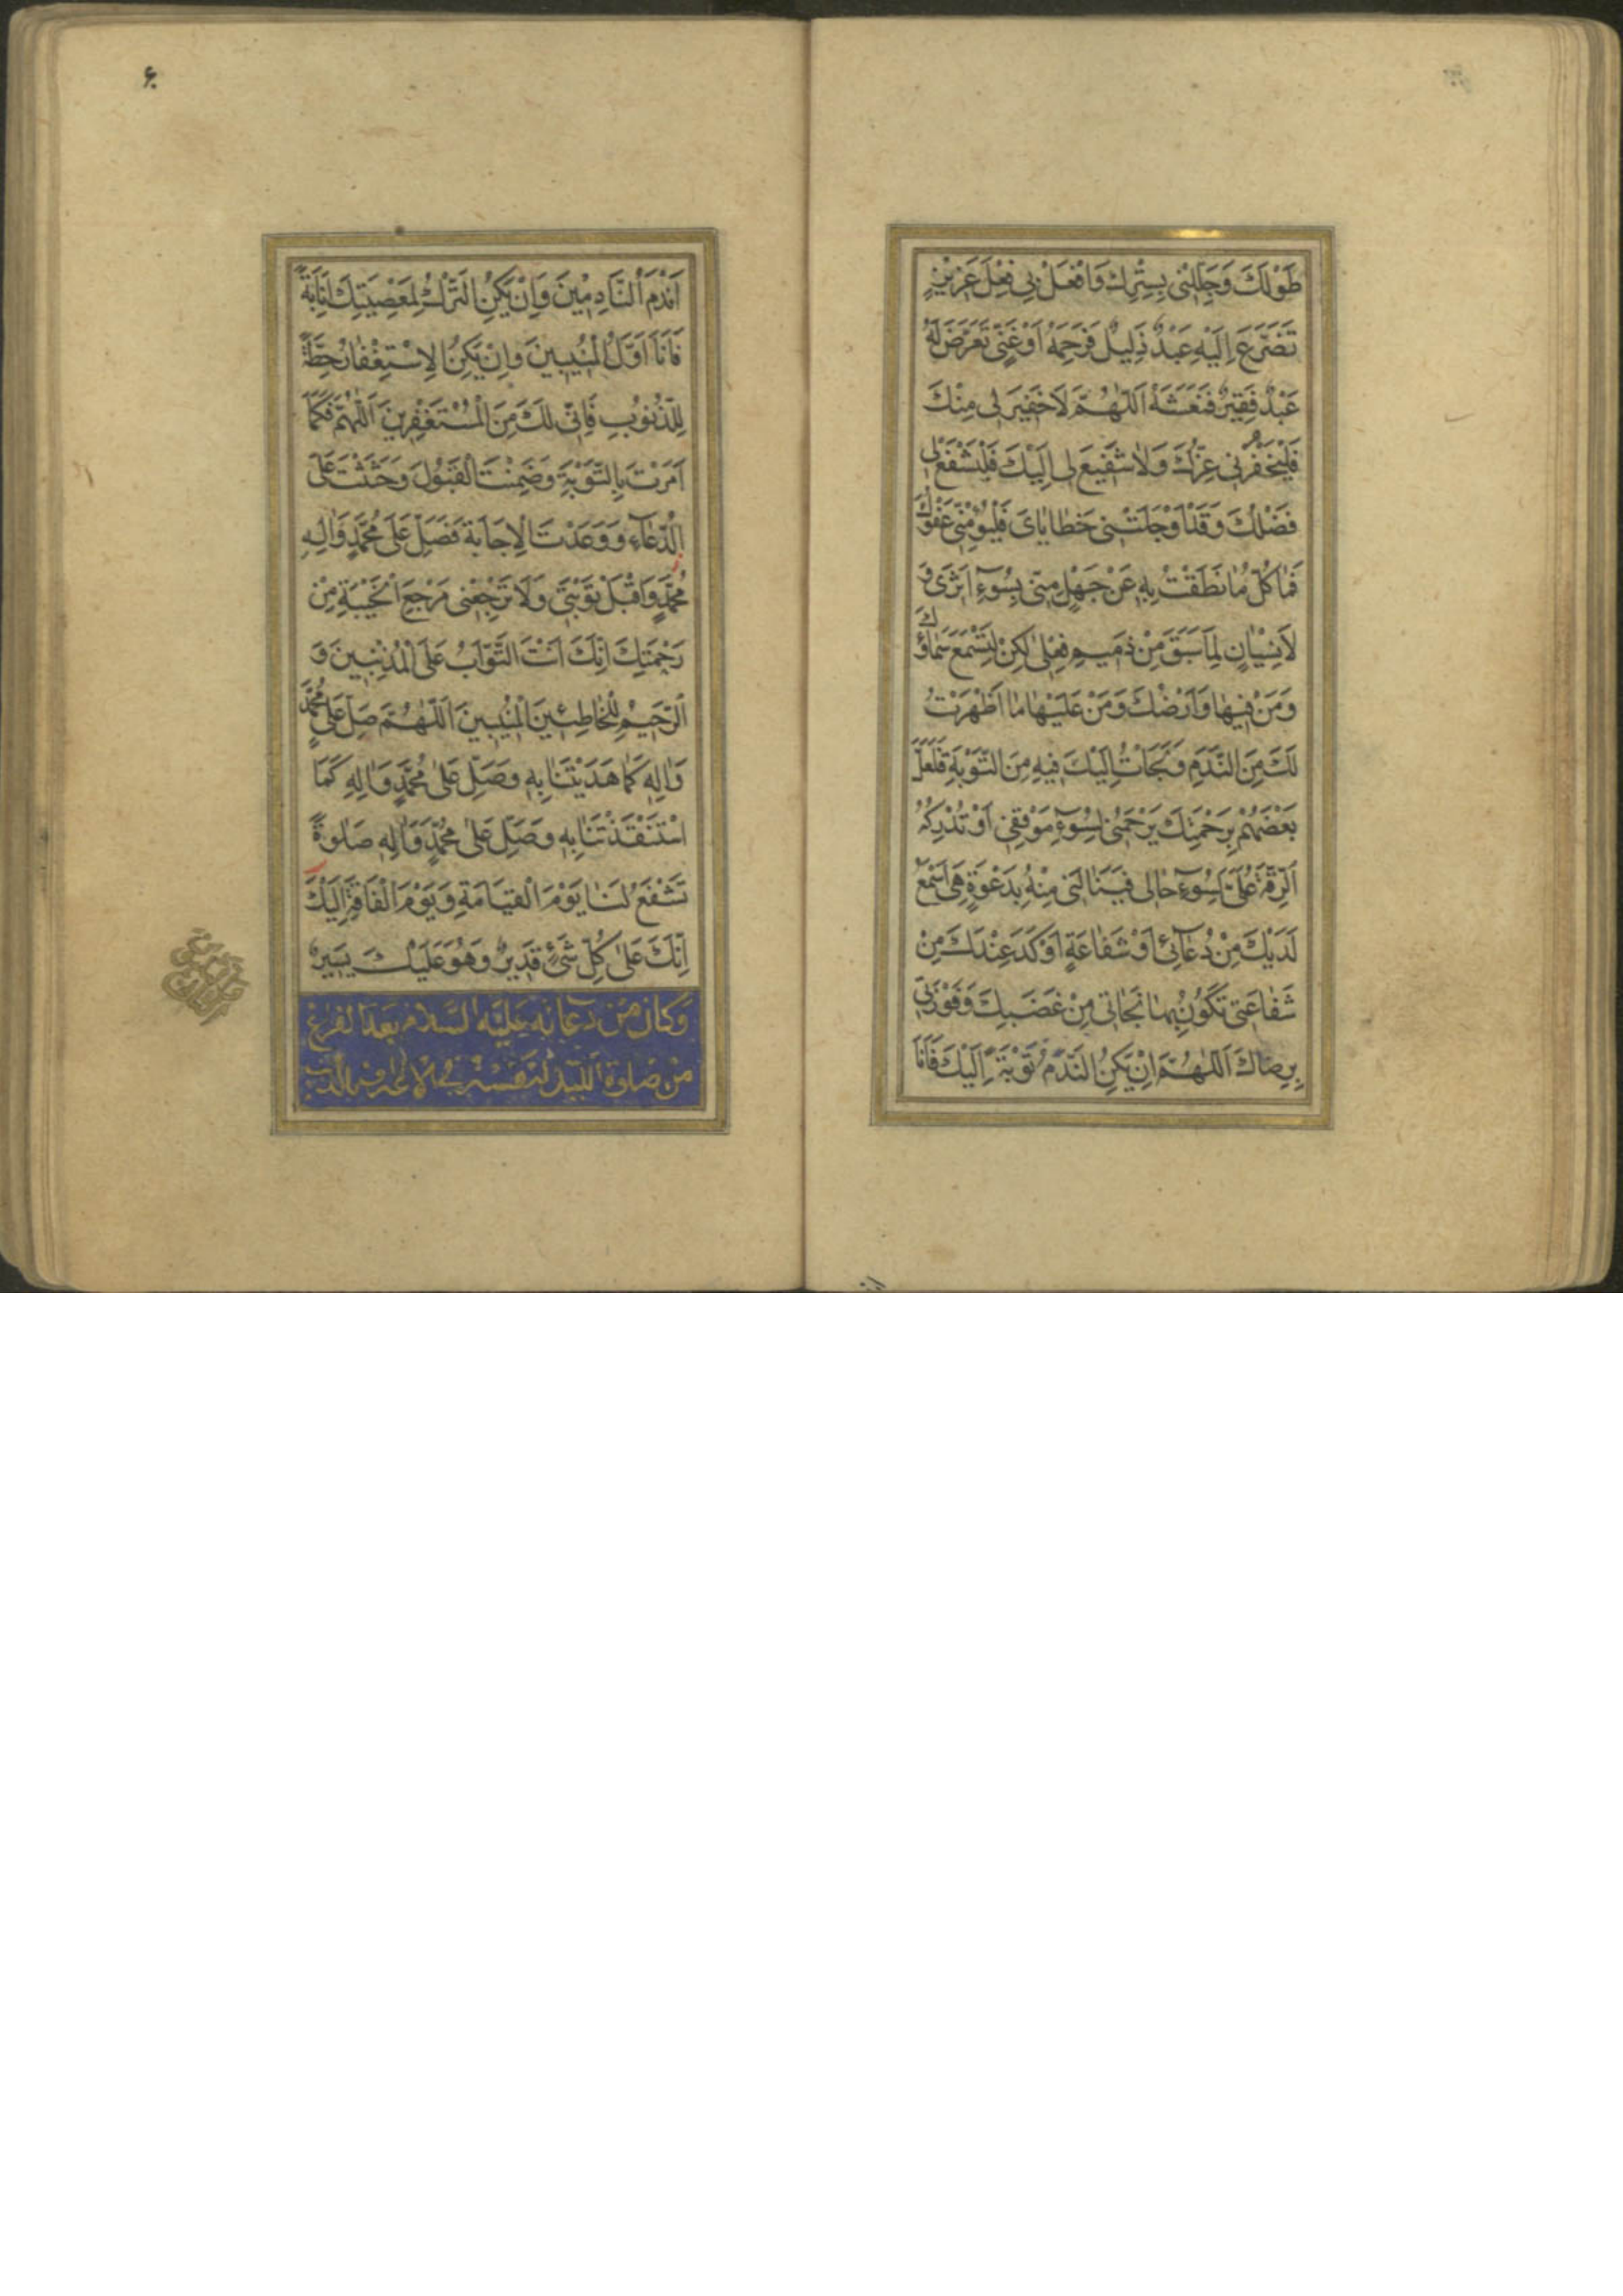 طَوْلَكَ وَجَلِّلْنِی بِسِتْرِكَ وَافْعَلْ بِی فِعْلَ عَزِیزٍ
تَضَرَّعَ اِلَیْهِ عَبْدٌ ذَلِیلٌ فَرَحِمَهُ اَوْ غَنِیٍّ تَعَرَّضَ لَهُ
عَبْدٌ فَقِیرٌ فَنَعَشَهُ اَللّٰهُمَّ لَا خَفِیرَ لِی مِنْكَ
فَلْیَخْفُرْنِی عِزُّكَ وَلَا شَفِیعَ لِی اِلَیْكَ فَلْیَشْفَعْ لِی
فَضْلُكَ وَقَدْ اَوْجَلَتْنِی خَطَایَایَ فَلْیُؤْمِنِّی عَفْوُكَ
فَمَا كُلُّ مَا نَطَقْتُ بِهِ عَنْ جَهْلٍ مِنِّی بِسُوءِ اَثَرِی وَ
لَا نِسْیَانٍ لِمَا سَبَقَ مِنْ ذَمِیمِ فِعْلِی لٰكِنْ لِتَسْمَعَ سَمَاؤُكَ
وَمَنْ فِیهَا وَاَرْضُكَ وَمَنْ عَلَیْهَا مَا اَظْهَرْتُ
لَكَ مِنَ النَّدَمِ وَلَجَاْتُ اِلَیْكَ فِیهِ مِنَ التَّوْبَةِ فَلَعَلَّ
بَعْضَهُمْ بِرَحْمَتِكَ یَرْحَمُنِی لِسُوءِ مَوْقِفِی اَوْ تُدْرِكُهُ
الرِّقَّةُ عَلَیَّ لِسُوءِ حَالِی فَیَنَالَنِی مِنْهُ بِدَعْوَةٍ هِیَ اَسْمَعُ
لَدَیْكَ مِنْ دُعَائِی اَوْ شَفَاعَةٍ اَوْكَدُ عِنْدَكَ مِنْ
شَفَاعَتِی تَكُونُ بِهَا نَجَاتِی مِنْ غَضَبِكَ وَفَوْزَتِی
بِرِضَاكَ اَللّٰهُمَّ اِنْ یَكُنِ النَّدَمُ تَوْبَةً اِلَیْكَ فَاَنَا
۶۰
اَنْدَمُ النَّادِمِینَ وَاِنْ یَكُنِ التَّرْكُ لِمَعْصِیَتِكَ اِنَابَةً
فَاَنَا اَوَّلُ الْمُنِیبِینَ وَاِنْ یَكُنِ الْاِسْتِغْفَارُ حِطَّةً
لِلذُّنُوبِ فَاِنِّی لَكَ مِنَ الْمُسْتَغْفِرِینَ اَللّٰهُمَّ فَكَمَا
اَمَرْتَ بِالتَّوْبَةِ وَضَمِنْتَ الْقَبُولَ وَحَثَثْتَ عَلَی
الدُّعَاءِ وَوَعَدْتَ الْاِجَابَةَ فَصَلِّ عَلَی مُحَمَّدٍ وَاٰلِهِ
مُحَمَّدٍ وَاقْبَلْ تَوْبَتِی وَلَا تَرْجِعْنِی مَرْجِعَ الْخَیْبَةِ مِنْ
رَحْمَتِكَ اِنَّكَ اَنْتَ التَّوَّابُ عَلَی الْمُذْنِبِینَ وَ
الرَّحِیمُ لِلْخَاطِئِینَ الْمُنِیبِینَ اَللّٰهُمَّ صَلِّ عَلٰی مُحَمَّدٍ
وَاٰلِهِ كَمَا هَدَیْتَنَا بِهِ وَصَلِّ عَلٰی مُحَمَّدٍ وَاٰلِهِ كَمَا
اسْتَنْقَذْتَنَا بِهِ وَصَلِّ عَلٰی مُحَمَّدٍ وَاٰلِهِ صَلٰوةً
تَشْفَعُ لَنَا یَوْمَ الْقِیَامَةِ وَیَوْمَ الْفَاقَةِ اِلَیْكَ
اِنَّكَ عَلٰی كُلِّ شَیْءٍ قَدِیرٌ وَهُوَ عَلَیْكَ یَسِیرٌ
وَكَانَ مِنْ دُعَائِهِ عَلَیْهِ السَّلَامُ بَعْدَ الْفَرَاغِ
مِنْ صَلٰوةِ اللَّیْلِ لِنَفْسِهِ فِی الْاِعْتِرَافِ بِالذَّنْبِ